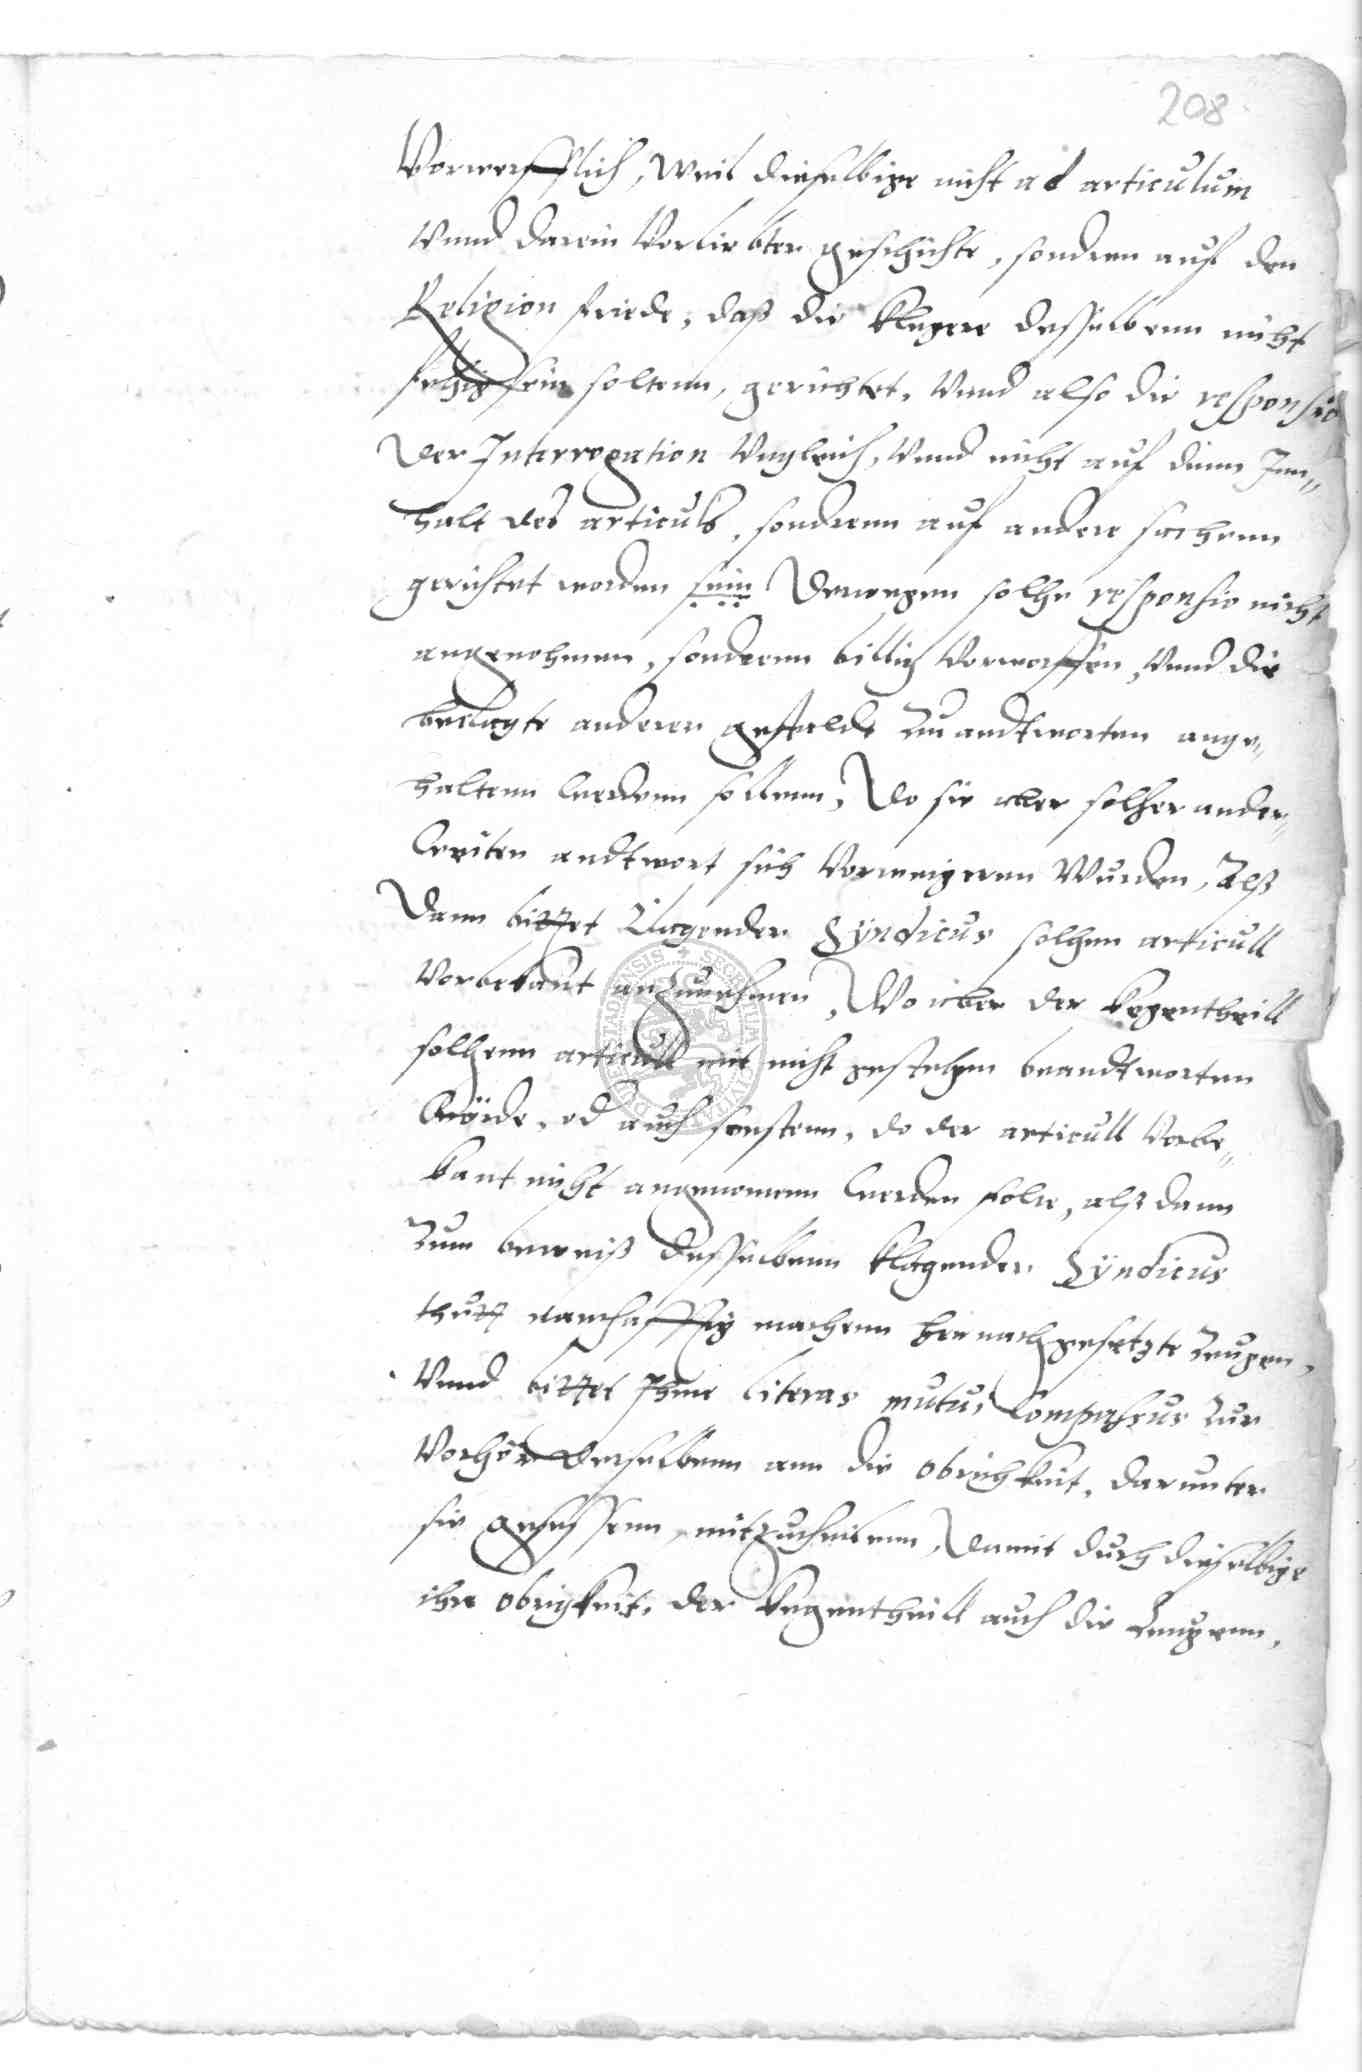 208
Vorwerfflich, weil dieselbige nicht ad articulum
vnnd darein verliebter geschichte, sondern auf den
Religion friede, daß die Klegere desselbenn nicht
fehig sein soltenn, gerichtet, vnnd also die responsio
der Interrogation vngleich, vnnd nicht auf dinn Inn„
halt des articuls, sonderen auf andere sachenn
gerichtet worden sein Derwegen solche responsio nicht
angenohmen, sonderen billig verworffen, vnnd die
beclagte anderer gestaldt zu andtworten ange„
haltenn werdenn sollenn, Do sie aber solcher ander„
weiten andtwort sich verweigerenn wurden, Alß
dann bittet Clagender Syndicus solchen articull
vor bekant anzunehmen, Wo aber der kegentheill
solchenn articull mit nicht gestehen beandtworten
wurde, od auch sonstenn, do der articull vorbe„
kant nicht angenomenn werden solte, alß dann
zum beweiß desselbenn klagender Syndicus
thutt namhafftig machenn hernachgesetzte zeugen,
Vnnd bittet Ihme literas mutui Compassus zur
Vorhör derselbenn ann die obrichkeit, darunter
sie gesessenn, mitzutheilenn, Damit durch dieselbige
ihre obrigkeit, der kegentheill auch die zeugenn,
SECRETUM CIVITATIS